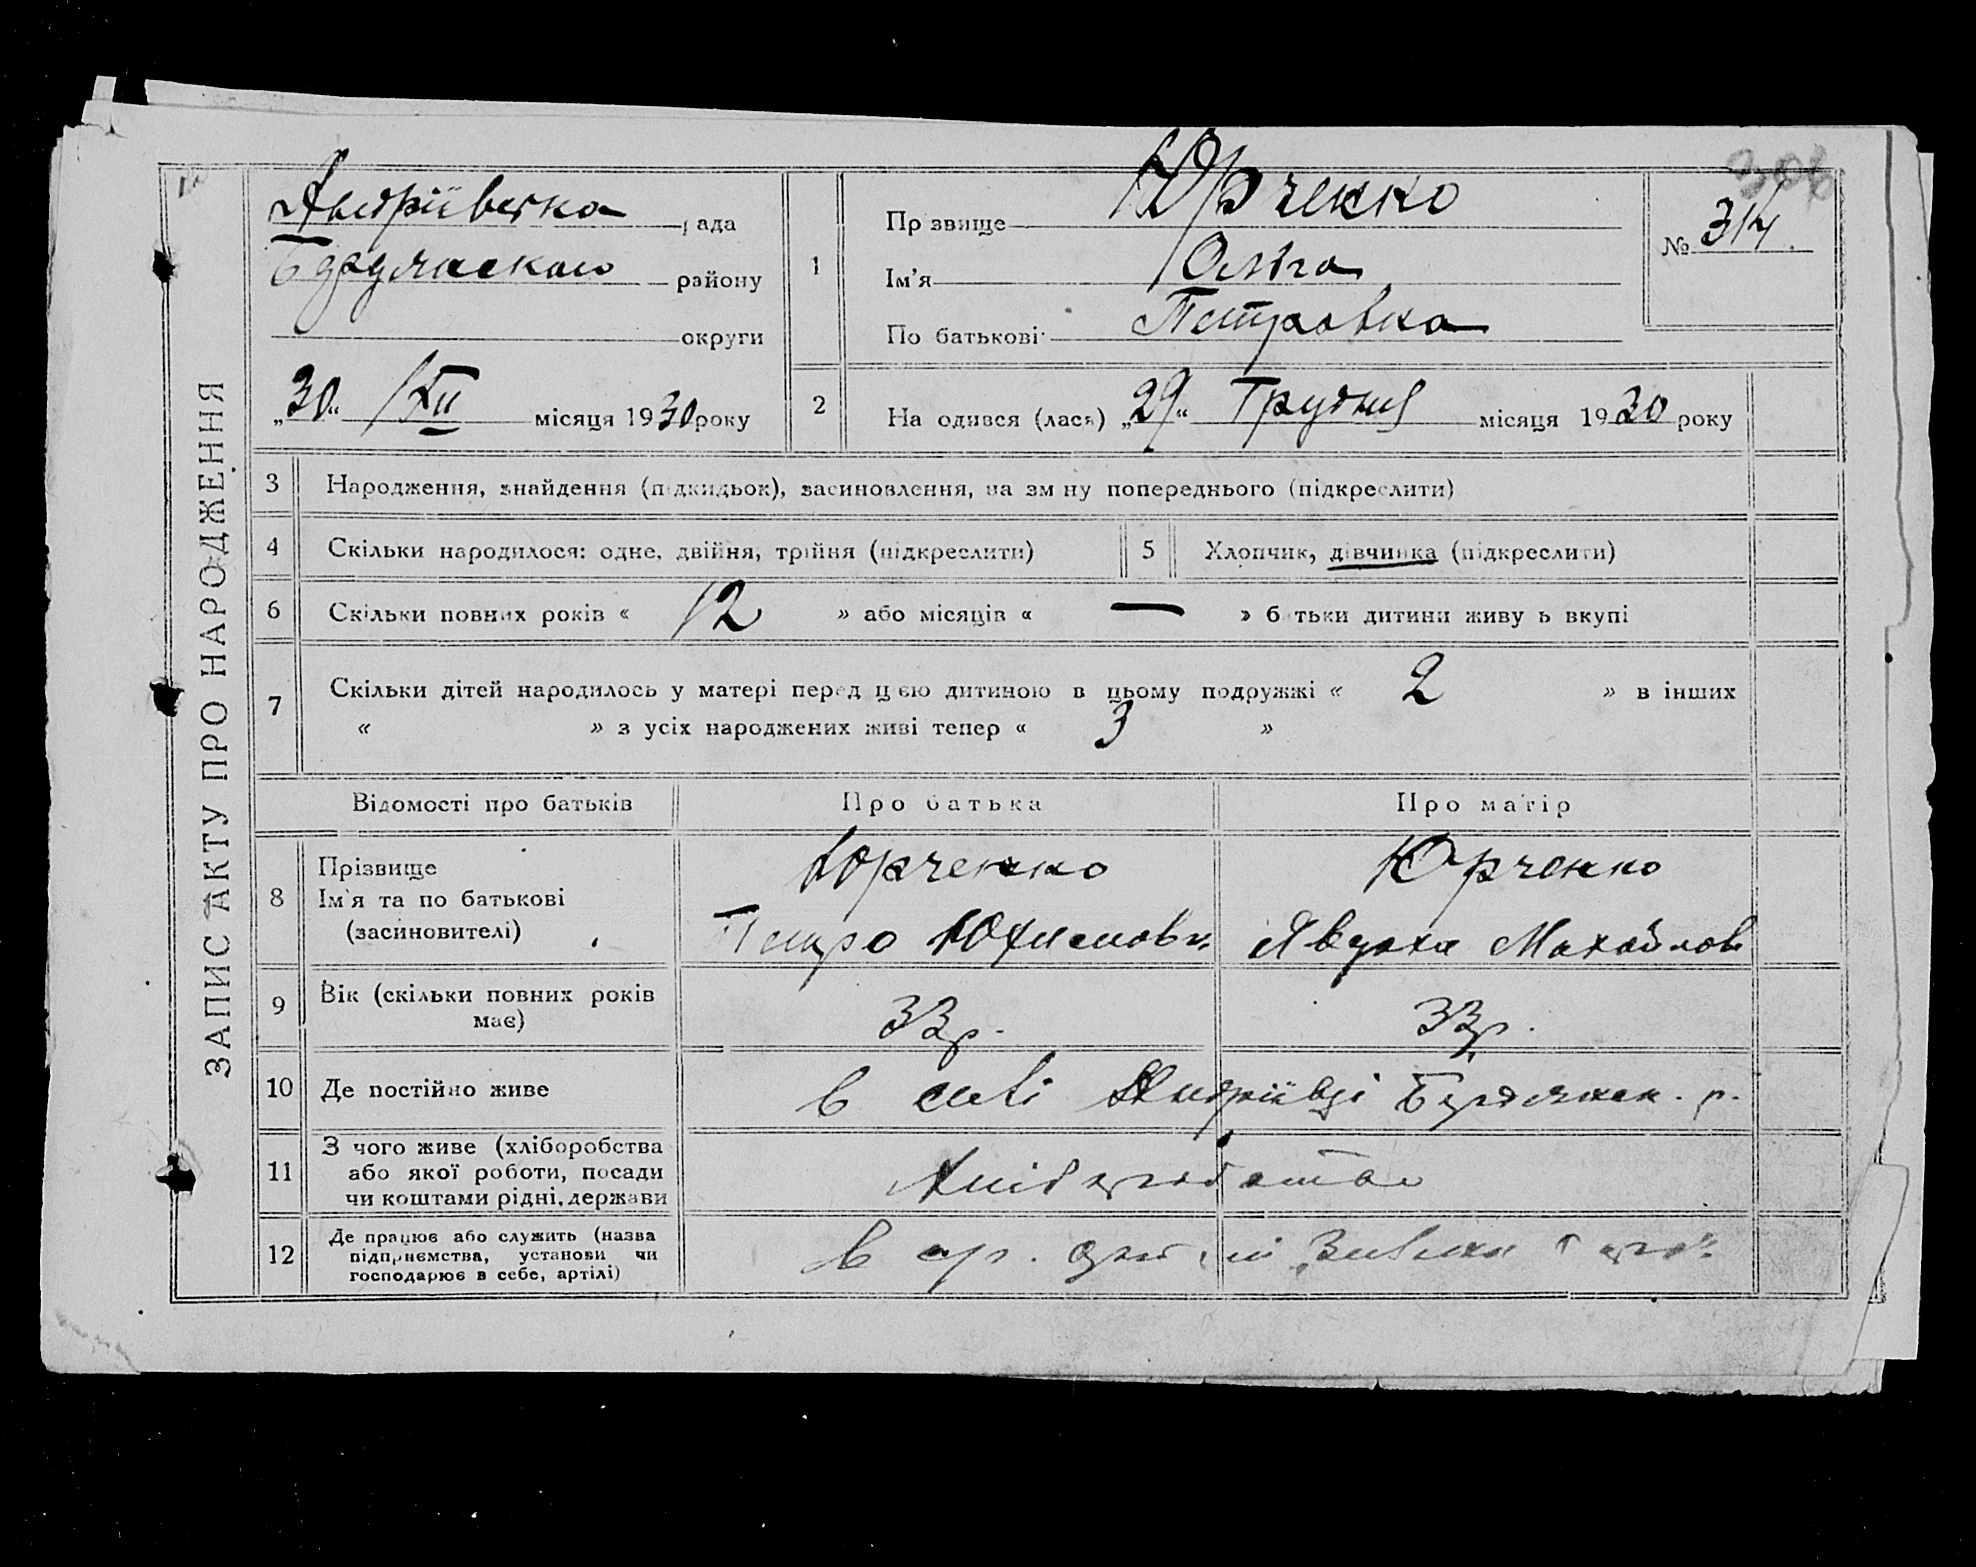 ЗАПИС АКТУ ПРО НАРОДЖЕННЯ
306
Андріївська рада
Бердянського району
округи
„30“ XII місяця 1930 року
1
Прізвище Юрченко
Ім'я Ольга
По батькові Петровна
№ 314.
2
Народився (лася) „29“ Грудня місяця 1930 року
3 Народження, знайдення (підкидьок), засиновлення, на зміну попереднього (підкреслити)
4 Скільки народилося: одне, двійня, трійня (підкреслити)
5 Хлопчик, дівчинка (підкреслити)
6 Скільки повних років « 12 » або місяців « — » батьки дитини живуть вкупі
7 Скільки дітей народилось у матері перед цією дитиною в цьому подружжі « 2 » в інших
« » з усіх народжених живі тепер « 3 »
Відомості про батьків Про батька Про матір
8
Прізвище
Ім'я та по батькові
(засиновителі)
Юрченко
Петро Юхимови
Юрченко
Явдоха Михайлов
9
Вік (скільки повних років
має)
33р.
33р.
10 Де постійно живе
в селі Андріївці Бердянськ. р.
11
З чого живе (хліборобства
або якої роботи, посади
чи коштами рідні, держави
Хліборобство
12
Де працює або служить (назва
підприємства, установи чи
господарює в себе, артілі)
в